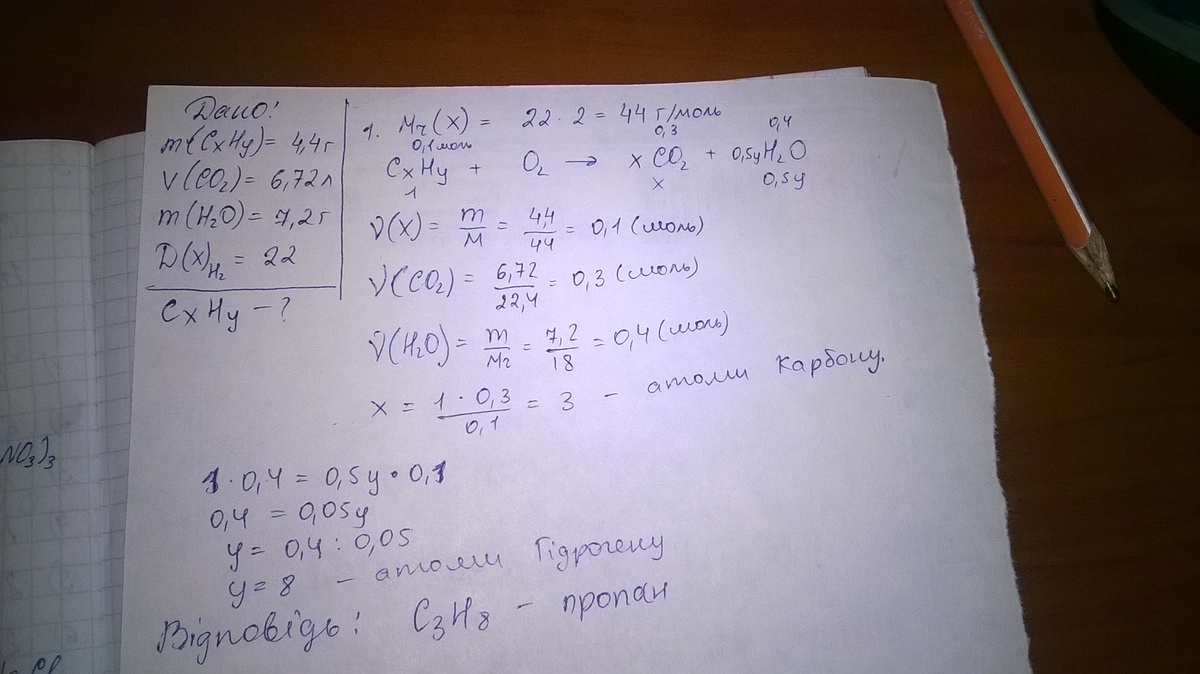 Дано:
m(CxHy) = 4,4г
V(CO2) = 6,72л
m(H2O) = 7,2г
D(X)H2 = 22
CxHy – ?
1. Mr(X) = 22 · 2 = 44 г/моль
0,1моль 0,3 0,4
CxHy + O2 → xCO2 + 0,5yH2O
1 x 0,5y
ν(X) = m/M = 4,4/44 = 0,1 (моль)
ν(CO2) = 6,72/22,4 = 0,3 (моль)
ν(H2O) = m/Mr = 7,2/18 = 0,4 (моль)
x = 1 · 0,3/0,1 = 3 – атоми Карбону.
1 · 0,4 = 0,5y · 0,1
0,4 = 0,05y
y = 0,4 : 0,05
y = 8 – атоми Гідрогену
Відповідь: C3H8 – пропан
NO3)3